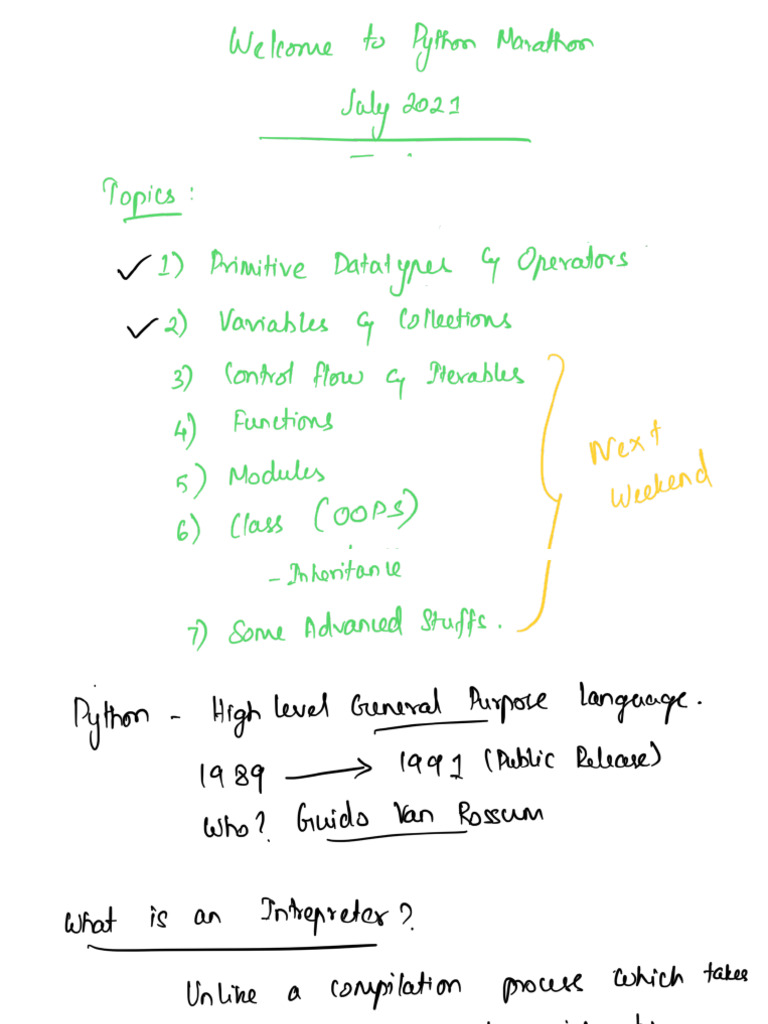 Welcome to Python Marathon
July 2021
Topics :
✓ 1) Primitive Datatypes & Operators
✓ 2) Variables & Collections
3) Control flow & Iterables
4) Functions
5) Modules
6) Class (OOPS)
- Inheritance
7) Some Advanced Stuffs.
Next
Weekend
Python - High level General Purpose Language.
1989 → 1991 (Public Release)
Who? Guido Van Rossum
What is an Intrepreter?
Unlike a compilation process which takes